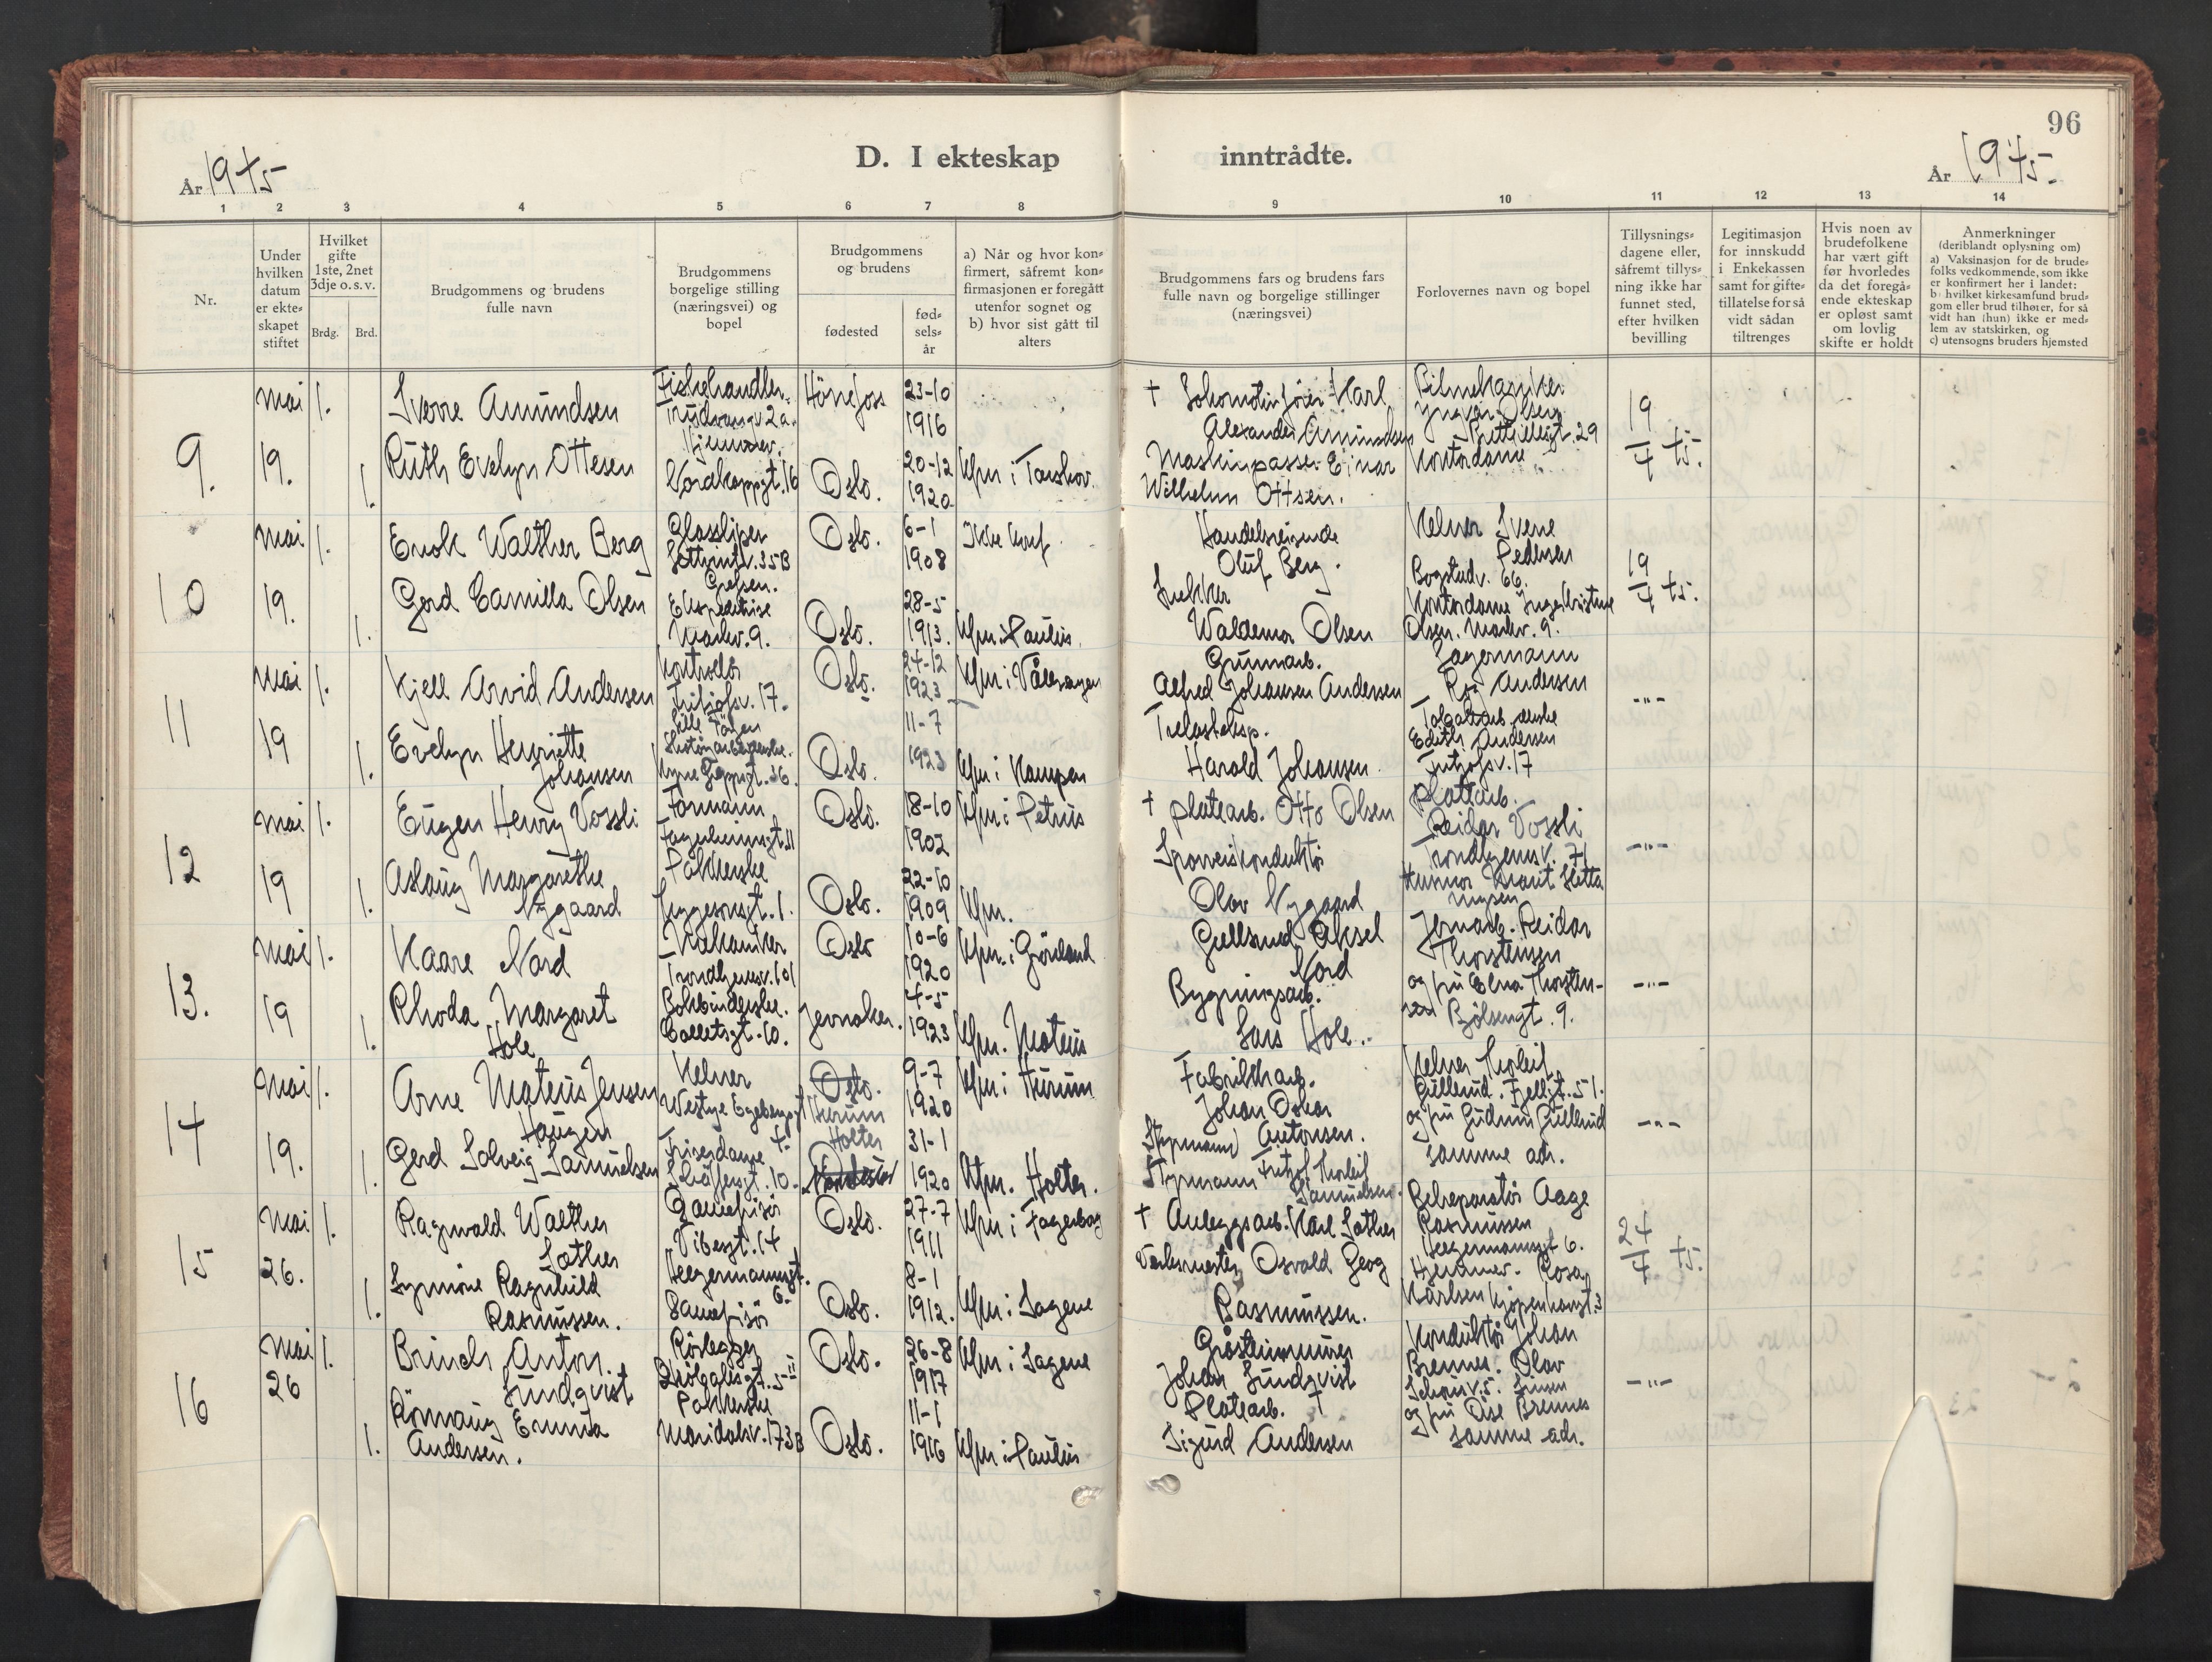 96
D. I ekteskap inntrådte.
År 1945 År 1945
1 2 3 4 5 6 7 8 9 10 11 12 13 14
Nr.
Under hvilken datum er ekte= skapet stiftet
Hvilket gifte 1ste, 2net 3dje o.s.v.
Brdg. Brd.
Brudgommens og brudens fulle navn
Brudgommens borgelige stilling (næringsvei) og bopel
Brudgommens og brudens
fødested
fød= sels= år
a) Når og hvor kon= firmert, såfremt kon= firmasjonen er foregått utenfor sognet og b) hvor sist gått til alters
Brudgommens fars og brudens fars fulle navn og borgelige stillinger (næringsvei)
Forlovernes navn og bopel
Tillysnings= dagene eller, såfremt tillys= ning ikke har funnet sted, efter hvilken bevilling
Legitimasjon for innskudd i Enkekassen samt for gifte= tillatelse for så vidt sådan tiltrenges
Hvis noen av brudefolkene har vært gift før hvorledes da det foregå= ende ekteskap er opløst samt om lovlig skifte er holdt
Anmerkninger (deriblandt oplysning om) a) Vaksinasjon for de brude= folks vedkommende, som ikke er konfirmert her i landet: b) hvilket kirkesamfund brud= gom eller brud tilhører, for så vidt han (hun) ikke er med= lem av statskirken, og c) utensogns bruders hjemsted
9. mai 19. 1. Sverre Amundsen Fiskehandler. Hønefoss 23-10 1916 + Lokomotivfører Karl Alexander Amundsen Bilmekaniker Yngvar Olsen 29 19/4 45.
1. Ruth Evelyn Ottesen Nordkappgt. 16 Oslo. 20-12 1920 Kfm i Torshov. Maskinpasser Einar Wilhelm Ottsen. Kontordame
10 mai 19. 1. Enok Walther Berg Glassliper 35B Grefsen. Oslo. 6-1 1908 Ikke konf. Handelsreisende Oluf Berg. Kelner Sverre Pedersen Bogstadv. 66. 19/4 45.
1. Gerd Camilla Olsen Ekspeditrise Markv. 9. Oslo. 28-5 1913. Kfm i Paulus. Snekker Waldemar Olsen Kontordame Inger Kristine Olsen. Markv. 9.
11 mai 19 1. Kjell Arvid Andersen Kontrolør Fritjofsv. 17. Lille Tøyen Oslo. 24-12 1923 Kfm i Vålerengen Grunnarb. Alfred Johansen Andersen Lagermann Roy Andersen -"-
1. Evelyn Henriette Johansen 36. Oslo. 11-7 1923 Kfm i Kampen Trelasteksp. Harald Johansen. Edith Andersen Fritjofsv. 17
12 mai 19 1. Eugen Henry Vossli Formann Fagerheimgt. 11 Oslo. 18-10 1902 Kfm i Petrus + platearb. Otto Olsen platearb. Reidar Vossli Trondhjemsv. 71 -"-
1. Aslaug Margarethe Nygaard Pakkerske 1. Oslo. 22-10 1909 Kfm. Sporveiskonduktør Olav Nygaard Husmor Marit
13. mai 19 1. Kaare Nord Mekaniker Trondhjemsv. 101 Oslo 10-6 1920 Kfm. i Grønland Gullsmed Aksel Nord Jernarb. Reidar Thorstensen -"-
1. Rhoda Margaret Hole Bokbinderske. Colletsgt. 10. Jevnaker. 4-5 1923 Kfm. Mateus Bygningsarb. Lars Hole. og fru Elna Thorsten- sen Bjølsengt. 9.
14 mai 19. 1. Arne Mateus Jensen Haugen Kelner Westye Egebergsgt 4. Oslo. Hurum 9-7 1920 Kfm i Hurum Fabrikkarb. Johan Oskar Antonsen. Kelner Thorleif Gullerud. Fjellgt. 51. -"-
1. Gerd Solveig Samuelsen Friserdame 10. Holter 31-1 1920 Kfm. Holter. Styrmann Styrmann Fritjof Thorleif Samuelsen. og fru Gudrun Gullerud samme adr.
15 mai 26. 1. Ragnvald Walther Sother Vibesgt. 14 Oslo. 27-7 1911 Kfm i Fagerborg + Anleggsarb. Karl Sother Aage Rasmussen Heegermannsgt 6. 24/4 45.
1. Synnøve Ragnhild Rasmussen. Heegermannsgt. 6. Oslo. 8-1 1912. Kfm i Sagene Verksmester Osvald Georg Rasmussen. Hjemmev. Rosa Karlsen Kjøpenhavngt. 3
16 mai 26 1. Brinch Anton. Lundqvist Rørlegger Oslo. 26-8 1917 Kfm i Sagene Gråsteinmurer Johan Lundqvist Konduktør Johan Brennes. Olav -"-
1. Rønnaug Emma Andersen. Pakkerske Maridalsv. 173B Oslo. 11-1 1916 Kfm i Paulus Platearb. + Sigurd Andersen og fru Brennes samme adr.